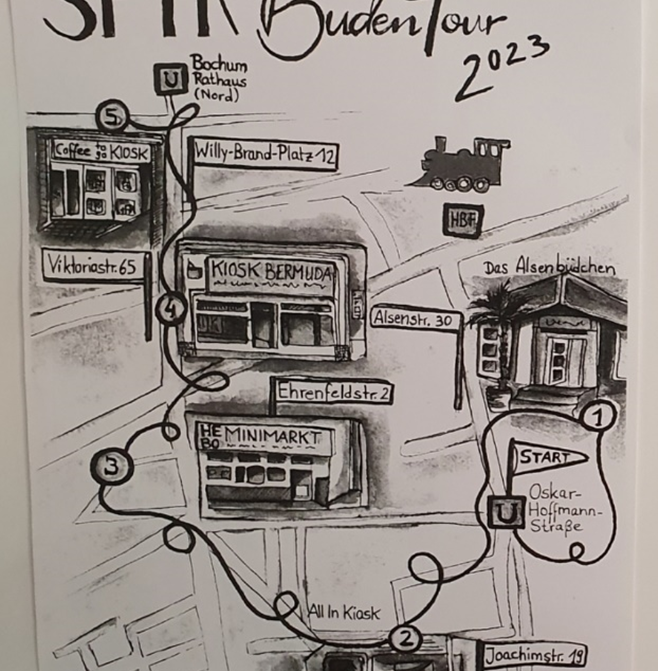 BudenTour
2023
U
Bochum
Rathaus
(Nord)
5
Coffee to go KIOSK
Willy-Brand-Platz 12
HBF
Viktoriastr. 65
KIOSK BERMUDA
Das Alsenbüdchen
4
Alsenstr. 30
Ehrenfeldstr. 2
HE MINIMARKT
BO
1
START
3
U
Oskar-
Hoffmann-
Straße
All In Kiosk
2
Joachimstr. 19